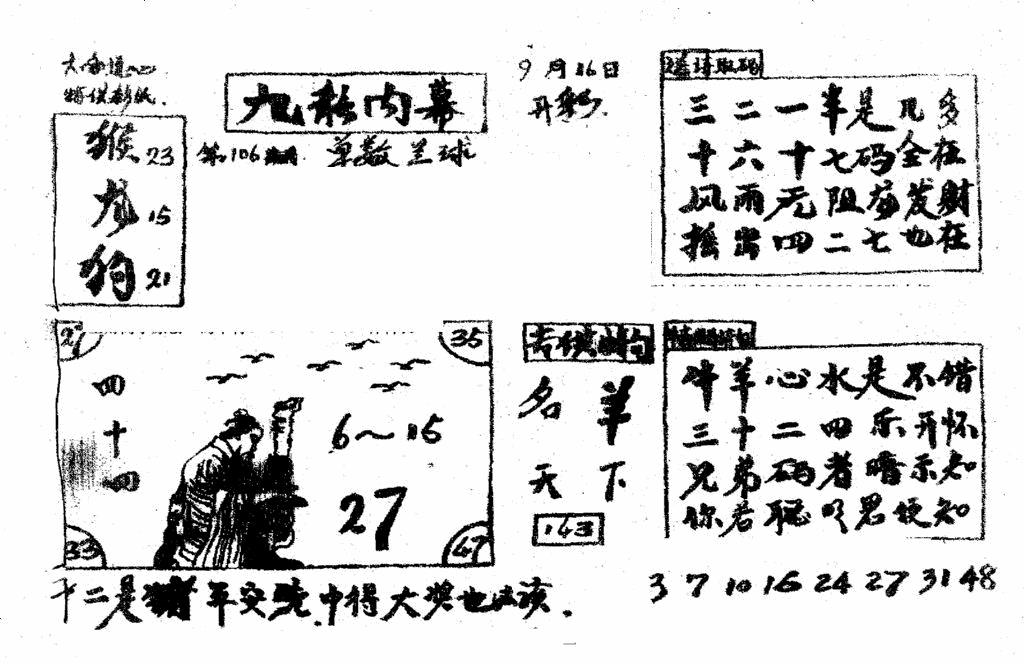 特供彩民
九龙内幕
第106期 单数兰球
9月16日
开彩
猴 23
龙 15
狗 21
送诗取码
三二一半是几多
十六十七码全在
风雨无阻为发财
摇出四二七也在
35
四十四
6~15
27
33
47
名羊天下
143
牛羊心水是不错
三十二四乐开怀
兄弟码者暗示知
你若聪明君便知
十二是猪年交 中得大奖也应该.
3 7 10 16 24 27 31 48